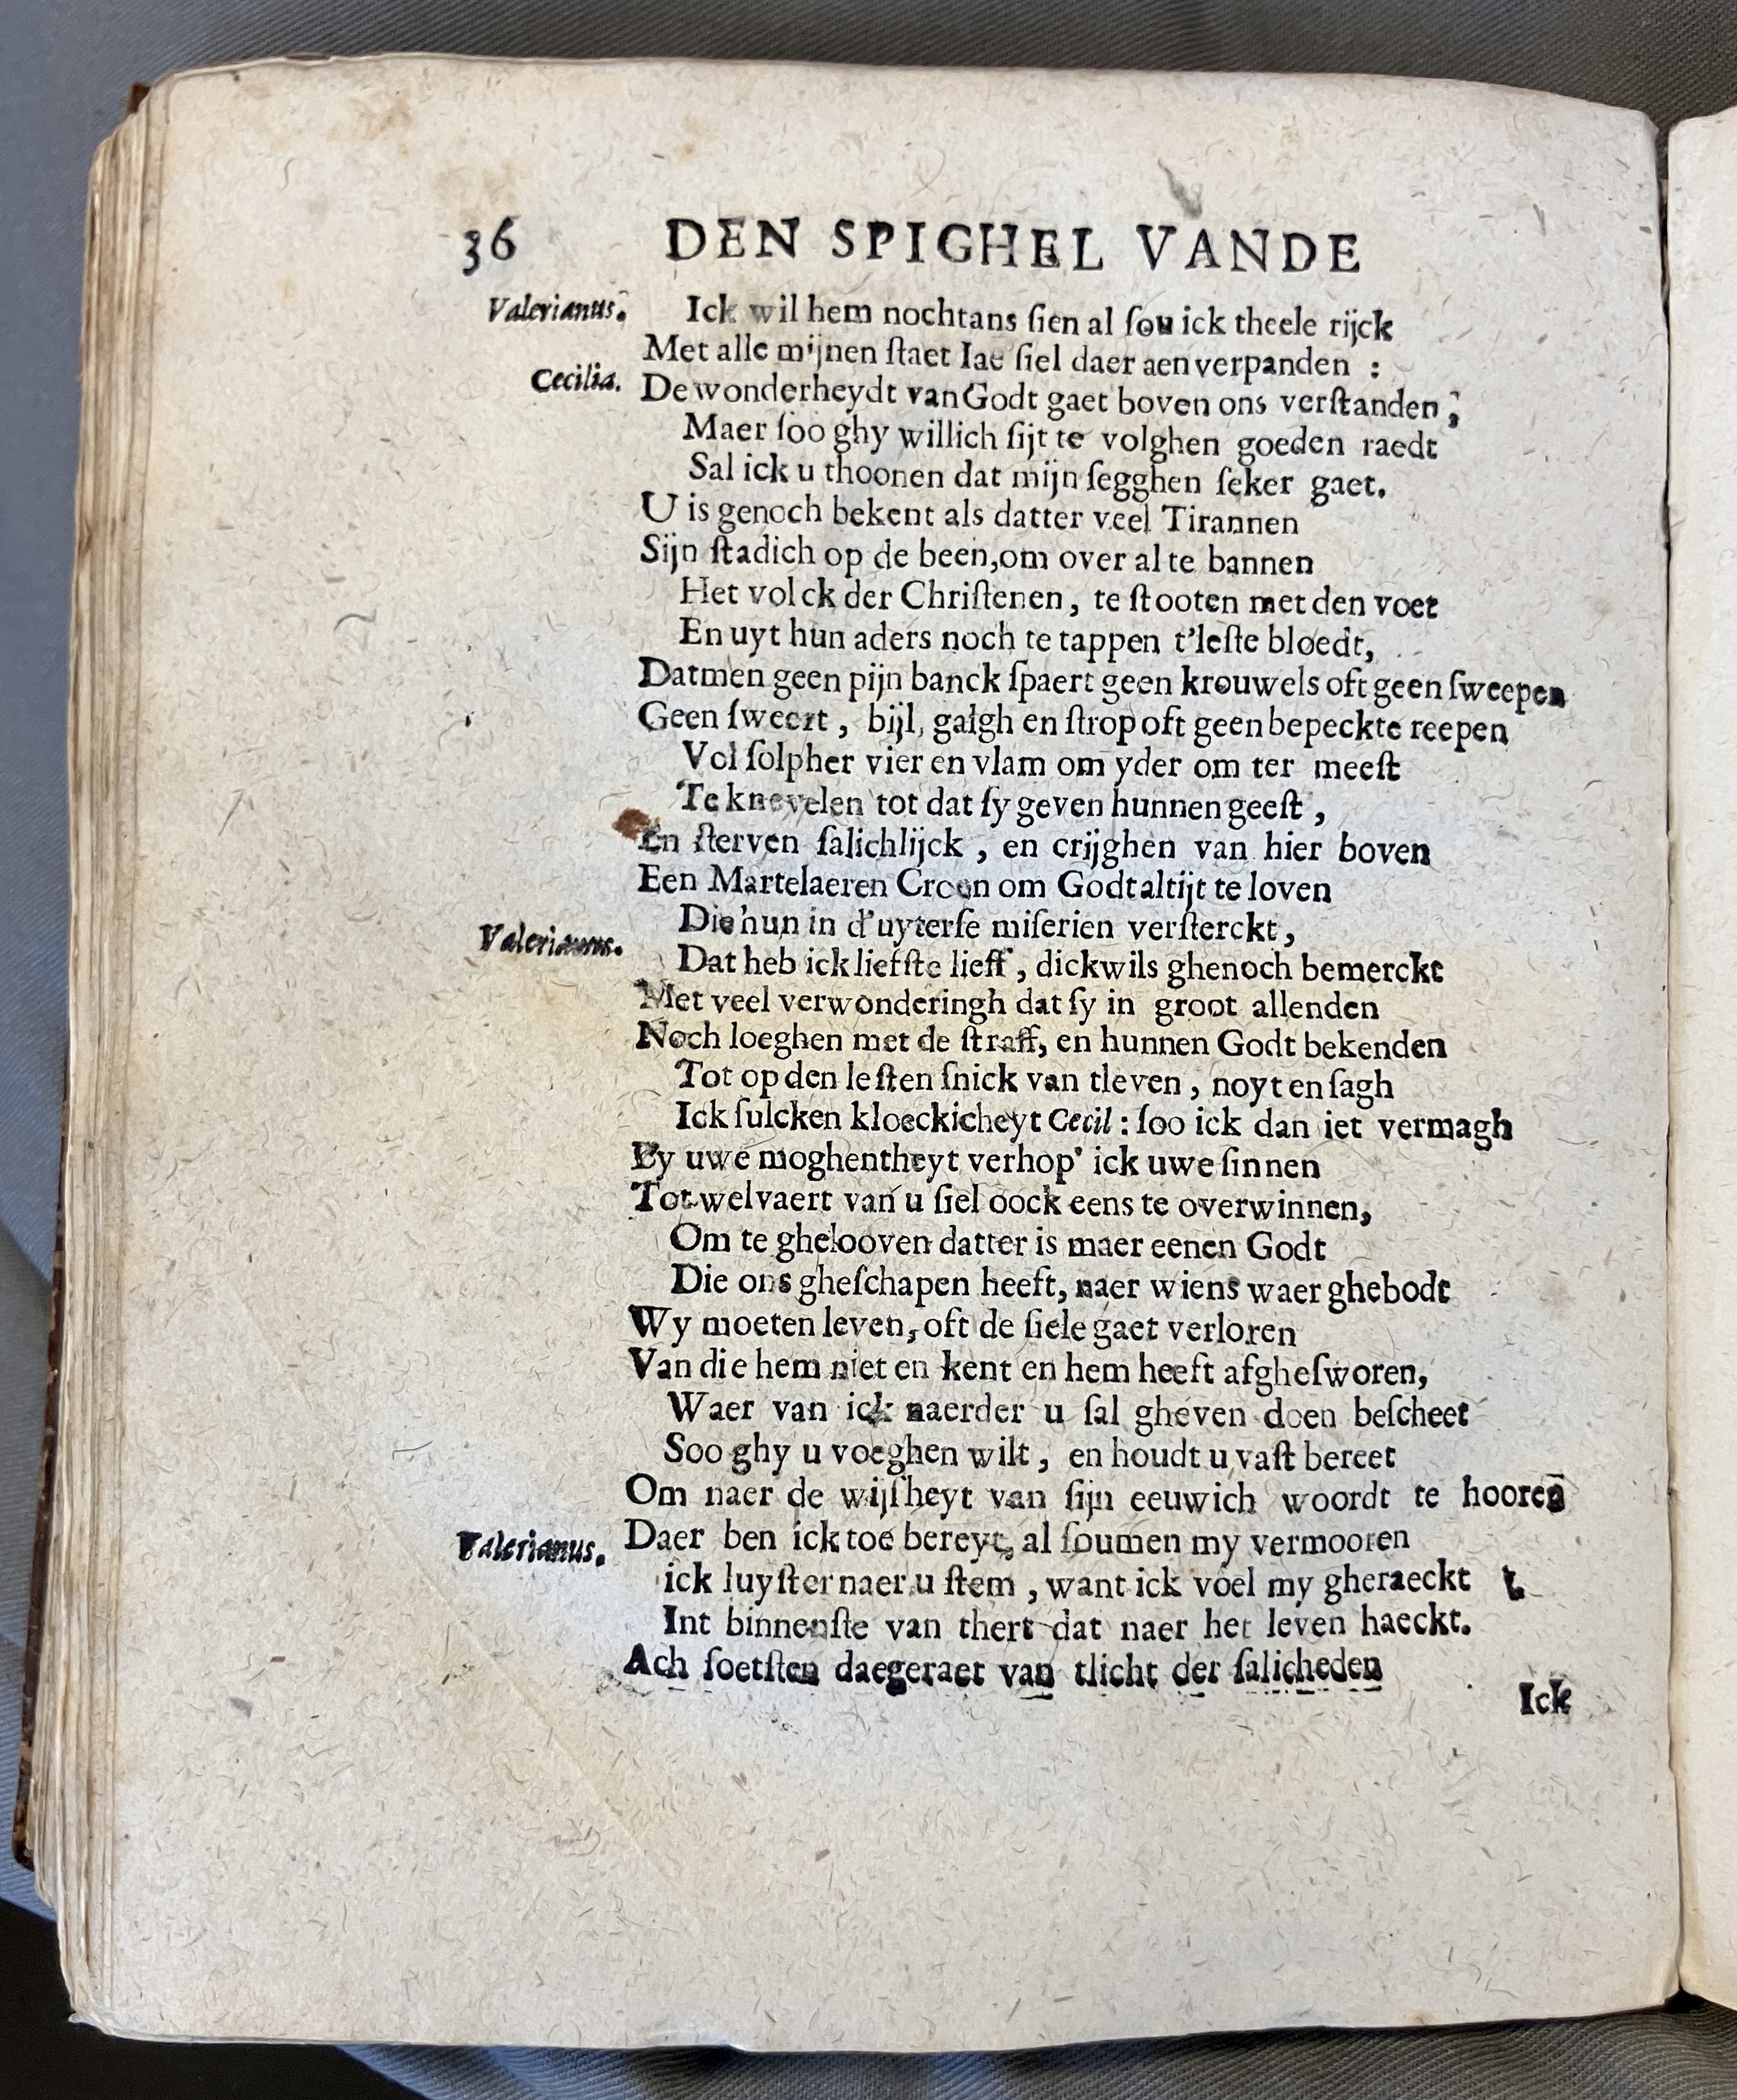 36 DEN SPIGHEL VANDE
Valerianus. Ick wil hem nochtans ſien al ſou ick theele rijck
Met alle mijnen ſtaet Iae ſiel daer aen verpanden :
Cecilia. De wonderheydt van Godt gaet boven ons verſtanden ;
Maer ſoo ghy willich ſijt te volghen goeden raedt
Sal ick u thoonen dat mijn ſegghen ſeker gaet.
U is genoch bekent als datter veel Tirannen
Sijn ſtadich op de been,om over al te bannen
Het volck der Chriſtenen, te ſtooten met den voet
En uyt hun aders noch te tappen t'leſte bloedt,
Datmen geen pijn banck ſpaert geen krouwels oft geen ſweepen
Geen ſweert, bijl, galgh en ſtrop oft geen bepeckte reepen
Vol ſolpher vier en vlam om yder om ter meeſt
Te knevelen tot dat ſy geven hunnen geeſt,
En ſterven ſalichlijck, en crijghen van hier boven
Een Martelaeren Croon om Godt altijt te loven
Die hun in d'uyterſe miſerien verſterckt,
Valerianus. Dat heb ick liefſte lieff, dickwils ghenoch bemerckt
Met veel verwonderingh dat ſy in groot allenden
Noch loeghen met de ſtraff, en hunnen Godt bekenden
Tot op den leſten ſnick van tleven, noyt en ſagh
Ick ſulcken kloeckicheyt Cecil : ſoo ick dan iet vermagh
By uwe moghentheyt verhop' ick uwe ſinnen
Tot welvaert van u ſiel oock eens te overwinnen,
Om te ghelooven datter is maer eenen Godt
Die ons gheſchapen heeft, naer wiens waer ghebodt
Wy moeten leven, oft de ſiele gaet verloren
Van die hem niet en kent en hem heeft afgheſworen,
Waer van ick naerder u ſal gheven doen beſcheet
Soo ghy u voeghen wilt, en houdt u vaſt bereet
Om naer de wijſheyt van ſijn eeuwich woordt te hooren
Valerianus. Daer ben ick toe bereyt, al ſoumen my vermooren
ick luyſter naer u ſtem, want ick voel my gheraeckt t
Int binnenſte van thert dat naer het leven haeckt.
Ach ſoetſten daegeraet van tlicht der ſalicheden
Ick